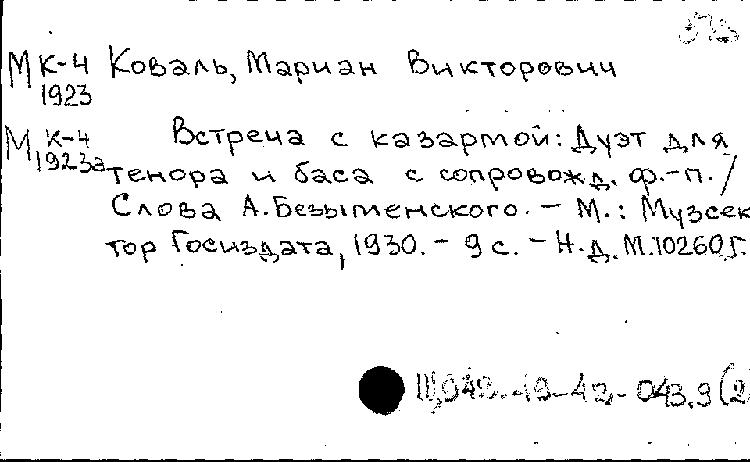 М К-4 Коваль, Мариан Викторович
1923
М К-4 Встреча с казармой: Дуэт для
1923а тенора и баса с сопровожд. ф.-п. /
Слова А. Безыменского. - М.: Музсек
тор Госиздата, 1930. - 9 с. - Н.д. М.10260Г.